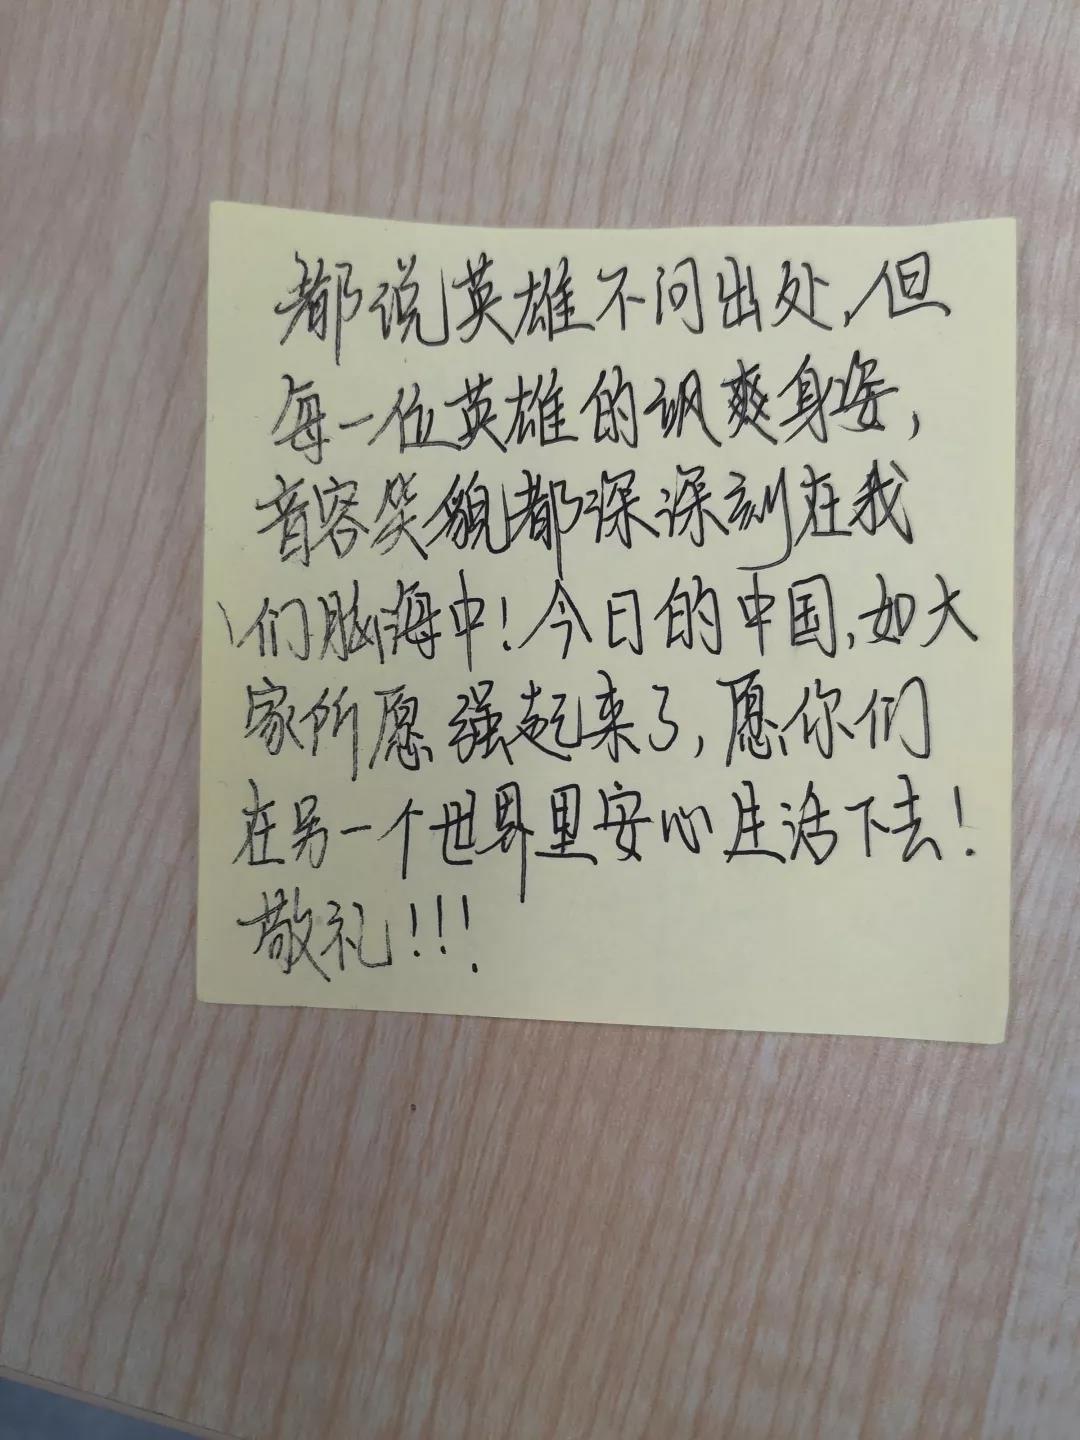 都说英雄不问出处,但
每一位英雄的飒爽身姿,
音容笑貌都深深刻在我
们脑海中!今日的中国,如大
家所愿强起来了,愿你们
在另一个世界里安心生活下去!
敬礼!!!